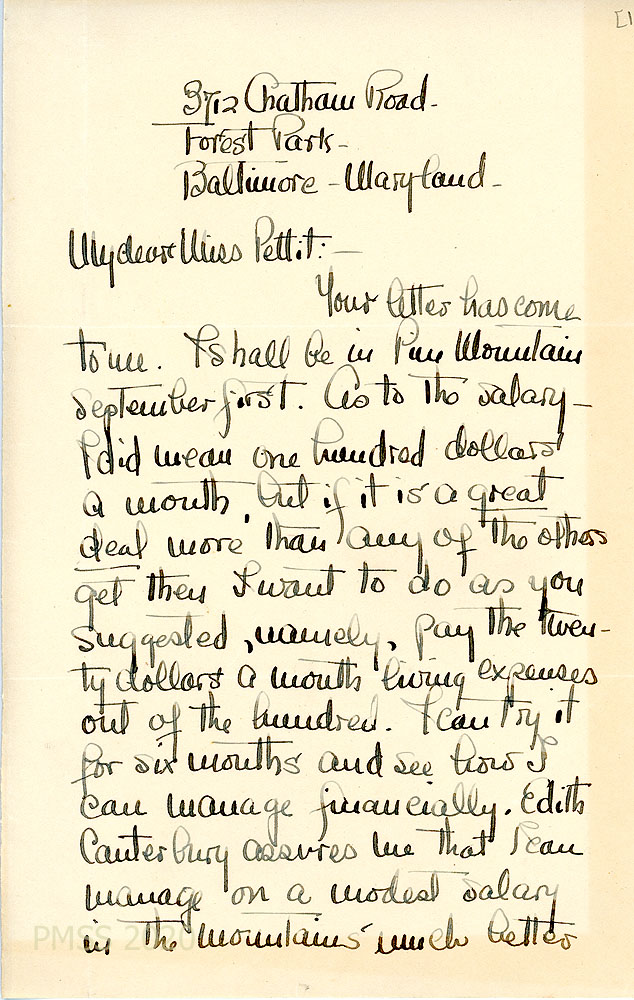 [1
3712 Chatham Road-
Forest Park-
Baltimore - Maryland-
My dear Miss Pettit:-
Your letter has come
to me. I shall be in Pine Mountain
September first. As to the salary-
I did mean one hundred dollars
a month, but if it is a great
deal more than any of the others
get then I want to do as you
suggested, namely, pay the twen-
ty dollars a month living expenses
out of the hundred. I can try it
for six months and see how I
can manage financially. Edith
Canterbury assures me that I can
manage on a modest salary
in the mountains much better
PMSS 2020